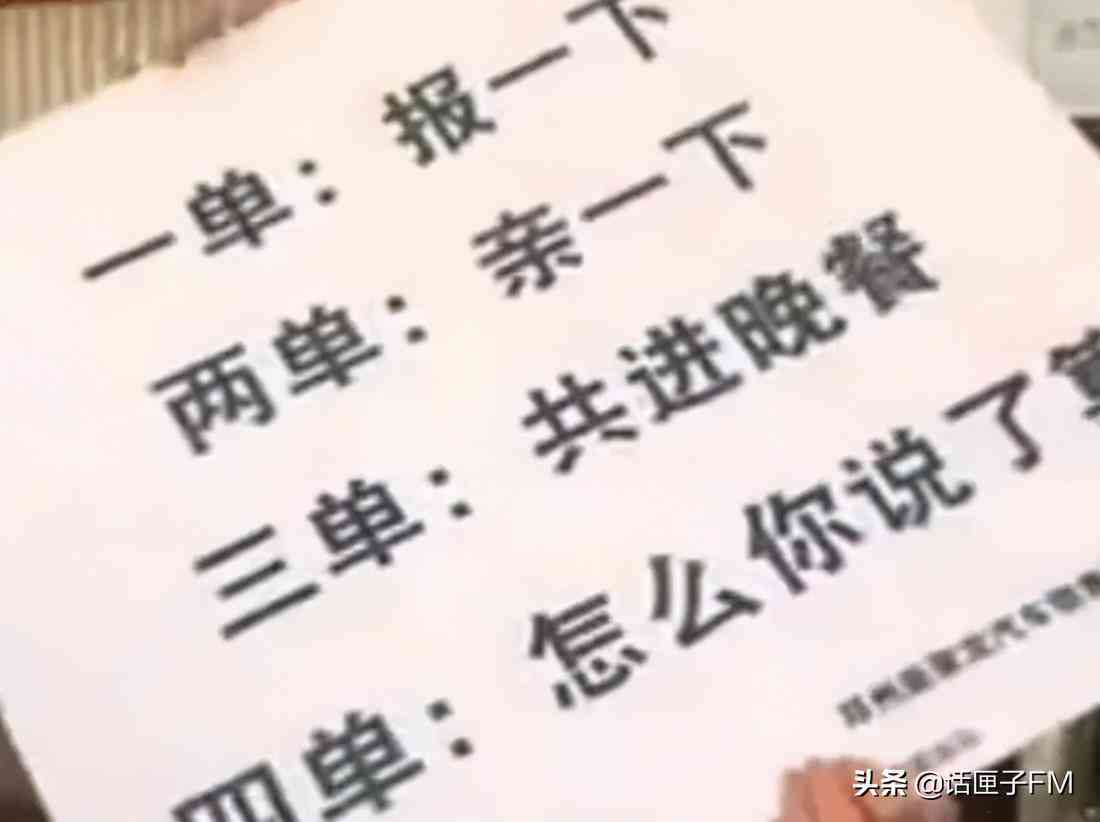 一单：报一下
两单：亲一下
三单：共进晚餐
四单：怎么你说了算
郑州 汽车销售
头条 @话匣子FM